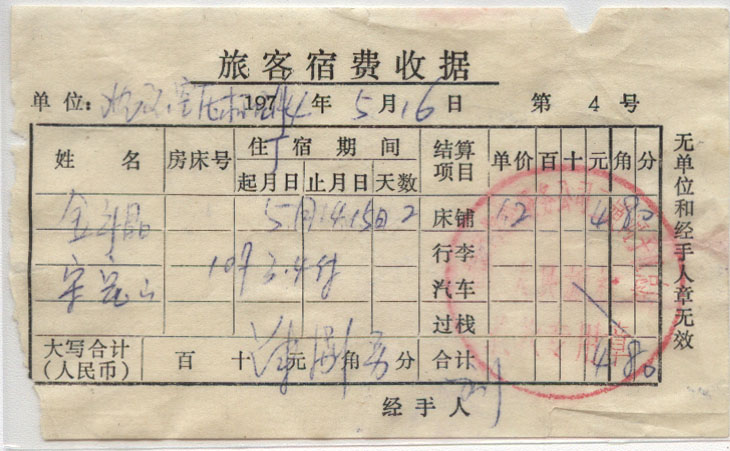 旅客宿费收据
单位: 197 4 年 5 月 16 日 第 4 号
姓名 房床号 住宿期间 结算项目 单价 百 十 元 角 分
起月日 止月日 天数
金 晶 5月14.15日 2 床铺 12 4 80
宋 山 10号 3.4号 行李
汽车
过栈
大写合计(人民币) 百 十 元 角 分 合计 4 80
经手人 刘
无单位和经手人章无效